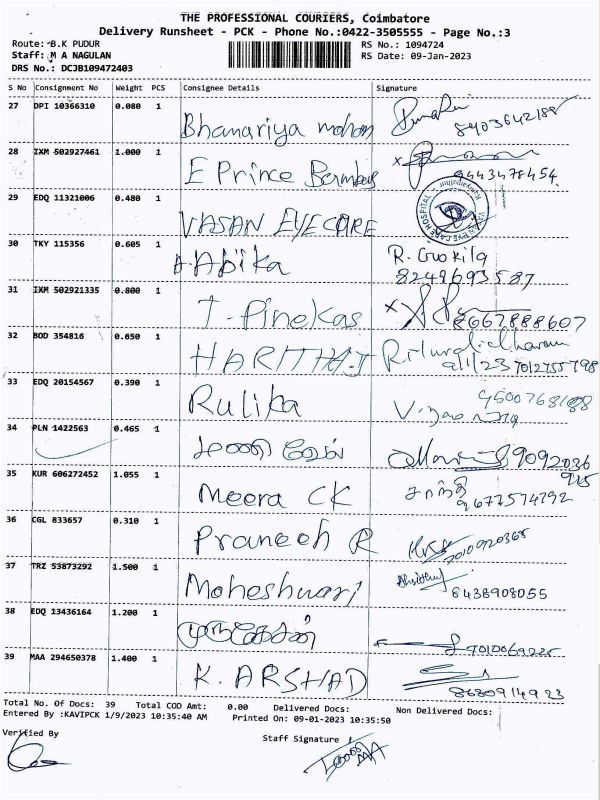 THE PROFESSIONAL COURIERS, Coimbatore
Delivery Runsheet - PCK - Phone No.:0422-3505555 - Page No.:3
Route: B.K PUDUR RS No.: 1094724
Staff: M A NAGULAN RS Date: 09-Jan-2023
DRS No.: DCJB109472403
S No Consignment No Weight PCS Consignee Details Signature
27 DPI 10366310 0.080 1 Bhanariya mohan
28 IXM 502927461 1.000 1 E Prince 9443478454
29 EDQ 11321006 0.480 1 VASAN EYE CARE
30 TKY 115356 0.605 1 Abika R. Gokila
8248693587
31 IXM 502921335 0.800 1 T-Pinekas 8667888607
32 BOD 354816 0.650 1 HARITHA.J
33 EDQ 20154567 0.390 1 Rulika
34 PLN 1422563 0.465 1
35 KUR 606272452 1.055 1 Meera CK சாந்தி
9677574792
36 CGL 833657 0.310 1 Praneeh R
37 TRZ 53873292 1.500 1 Moheshwari 6438908055
38 EDQ 13436164 1.200 1 முருகேசன்
39 MAA 294650378 1.400 1 K. ARSHAD 8680914923
Total No. Of Docs: 39 Total COD Amt: 0.00 Delivered Docs: Non Delivered Docs:
Entered By :KAVIPCK 1/9/2023 10:35:40 AM Printed On: 09-01-2023 10:35:50
Verified By Staff Signature